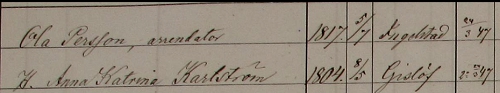 Ola Persson, arrendator 1817. 5/7 Ingelstad 24/3 47
H. Anna Katrina Karlström 1804. 8/5 Gislöf 47